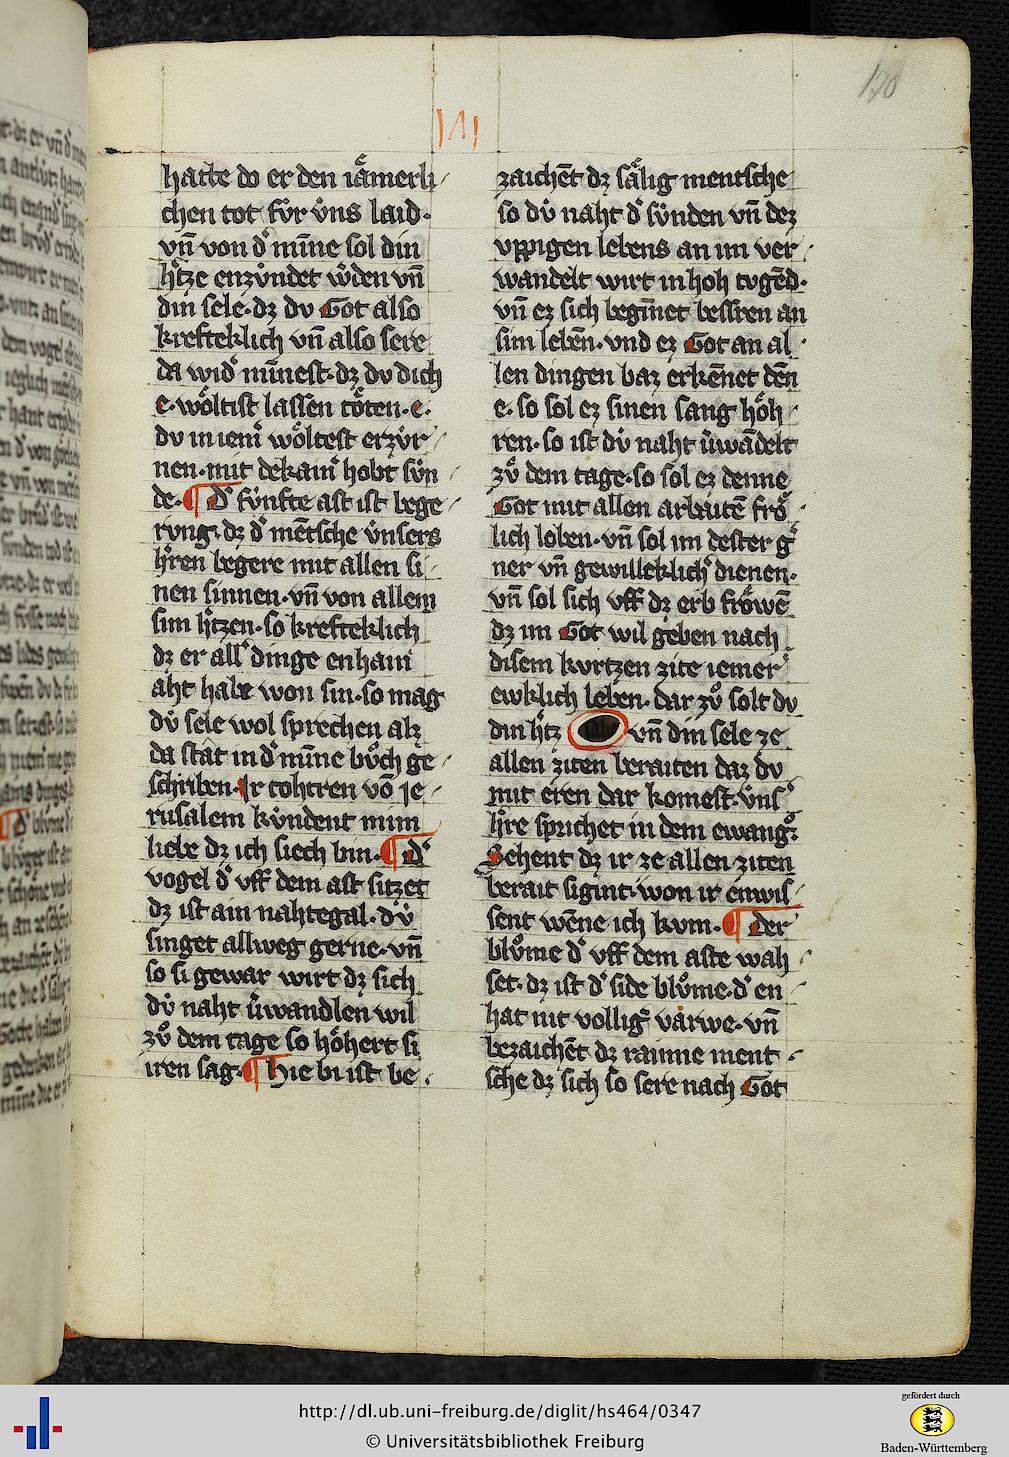 170
VII
hatte do er den iaͤmerli
chen tot fúr v́ns laid·
vn̄ von dˀ miñe sol din
hˀtze enzv́ndet wˀden vn̄
din sele· dz dv Got also
krefteklich vn̄ also sere
da widˀ miñest· dz dv dich
e· woͤltist lassen toͤten· e·
dv in ienrˀ woͤltest erzv́r
nen· mit dekainˀ hobt súnn
de· ¶ Dˀ fv́nfte ast ist bege
rvng· dz dˀ mēsche v́nsers
hˀren begere mit allen si
nen sinnen· vn̄ von allem
sim hˀtzen· so krefteklich
dz er allˀ dinge enhain
aht habe won sin· so mag
dv́ sele wol sprechen alz
da stat in dˀ miñe bůch ge
schriben· Ir tohtren vō je
rusalem kv́ndent mim
liebe dz ich siech bin· ¶ Dˀ
vogel dˀ vff dem ast sitzet
dz ist ain nahtegal· dv́
singet allweg gerne· vn̄
so si gewar wirt dz sich
dv́ naht v̂wandlen wil
zů dem tage so hoͤhert si
iren sag· ¶ Hie bi ist be
zaichēt dz saͤlig mentsche
so dv́ naht dˀ sv́nden vn̄ dez
vppigen lebens an im ver
wandelt wirt in hoh tvgēd·
vn̄ ez sich begiñet bessren an
sim lebēn· vnd ez Got an al
len dingen baz erkēnet dēn
e· so sol ez sinen sang hoͤh
ren· so ist dv́ naht v̂wādelt
zů dem tage· so sol ez denne
Got mit allen arbaitē froͤ
lich loben· vn̄ sol im dester gˀ
ner vn̄ gewilleklichˀ dienen·
vn̄ sol sich vff dz erb froͤwē
dz im Got wil geben nach
disem kvrtzen zite iemerˀ
ewklich leben· dar zů solt dv
din hˀtz vn̄ din sele ze
allen ziten beraiten daz dv
mit eren dar komest· v́nsˀ
hˀre sprichet in dem ewang
Sehent dz ir ze allen ziten
berait sigint· won ir enwis
sent wēne ich kvm· ¶ Der
blůme dˀ vff dem aste wah
set· dz ist dˀ side blůme· dˀ en
hat nit volligˀ varwe· vn̄
bezaichēt dz rainne ment
sche dz sich so sere nach Got
http://dl.ub.uni-freiburg.de/diglit/hs464/0347
© Universitätsbibliothek Freiburg
gefördert durch
Baden-Württemberg